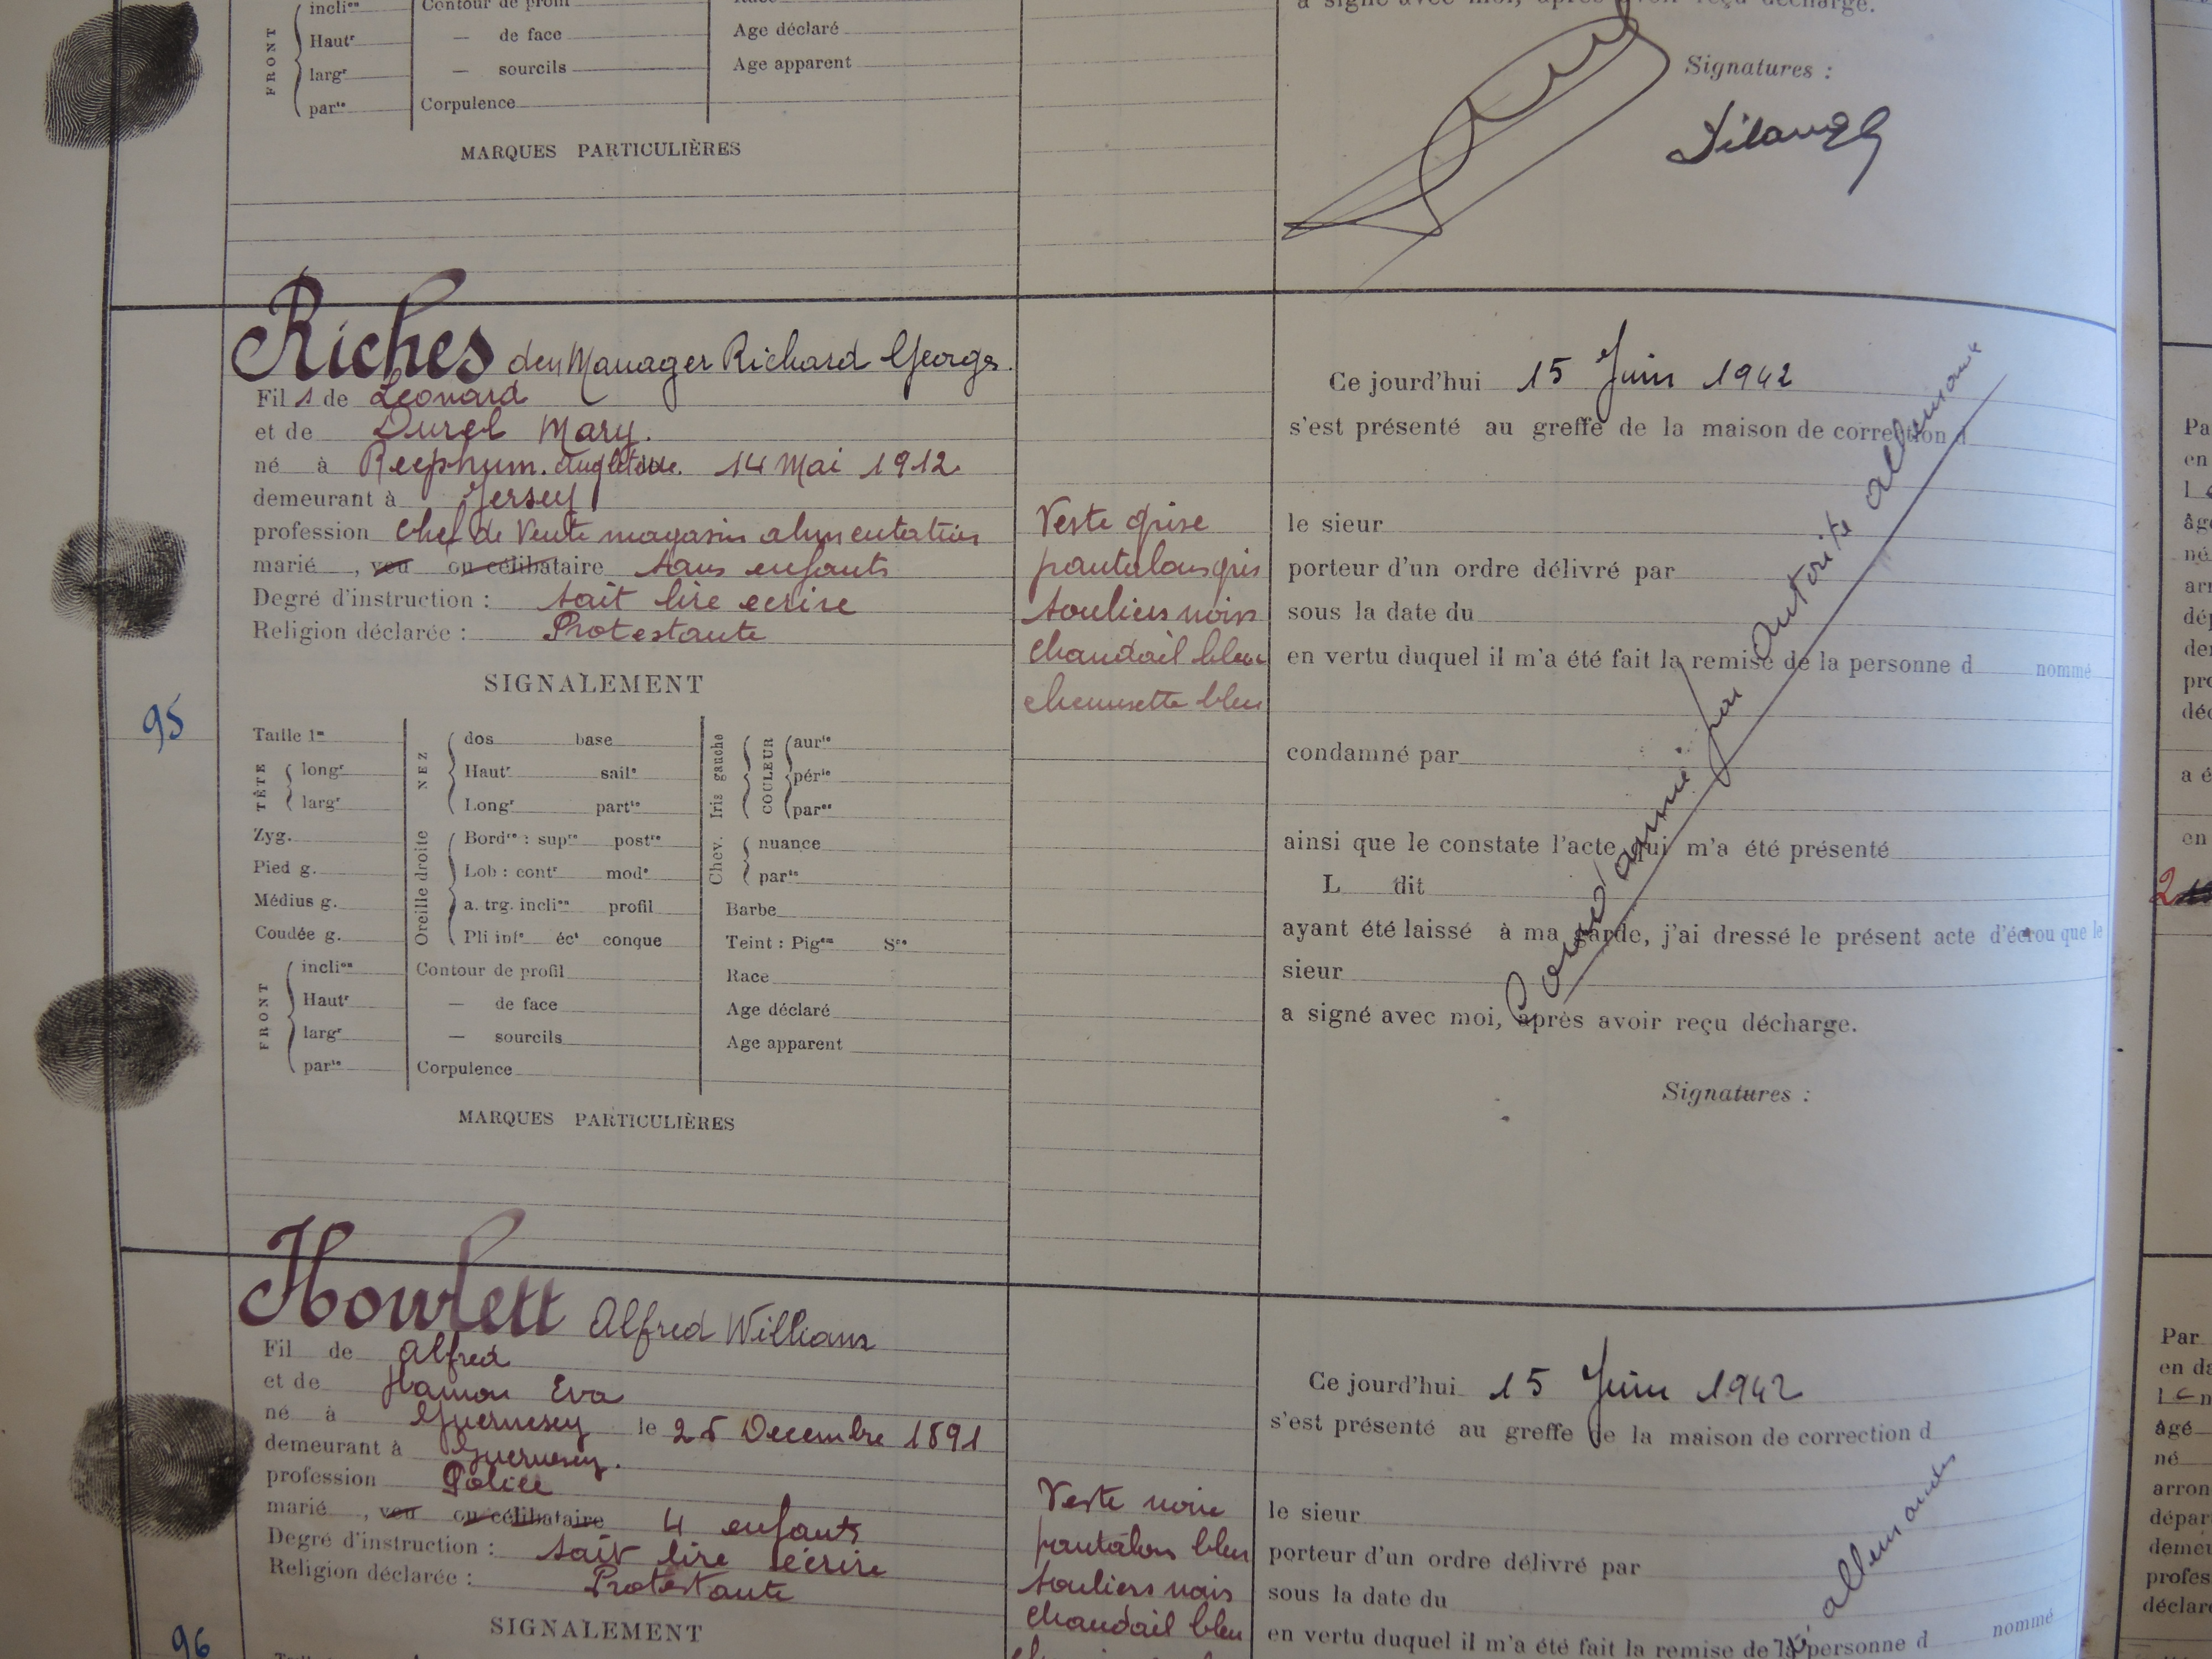 incli°ⁿ Contour de profil
Hautʳ — de face Age déclaré
FRONT largʳ — sourcils Age apparent
parᵗᵉ Corpulence
MARQUES PARTICULIÈRES
a signé avec moi, après avoir reçu décharge.
Signatures :
Riches Richard George
Fils de Leonard
et de Durel Mary.
né à Reephum. Angleterre. 14 Mai 1912
demeurant à Jersey
profession Chef de Vente magasin alimentation
marié , veu ou célibataire sans enfants
Degré d'instruction : sait lire ecrire
Religion déclarée : Protestante
SIGNALEMENT
95
Taille 1ᵐ
TÊTE longʳ
largʳ
Zyg.
Pied g.
Médius g.
Coudée g.
FRONT incli°ⁿ
Hautʳ
largʳ
parᵗᵉ
NEZ dos base
Hautʳ sailᵉ
Longʳ partᵗᵉ
Oreille droite Bordʳᵉ : supʳᵉ postʳᵉ
Lob : contʳ modᵉ
a. trg. incli°ⁿ profil
Pli infᵉ écᵗ conque
Contour de profil
— de face
— sourcils
Corpulence
Iris gauche COULEUR aurˡᵉ
périᵉ
parᵉˢ
Chev. nuance
parᵗᵉ
Barbe
Teint : Pigᵗᵉ Sᶜᵉ
Race
Age déclaré
Age apparent
MARQUES PARTICULIÈRES
Veste grise
pantalons gris
souliers noirs
Chandail bleu
chemisette bleu
Ce jourd'hui 15 Juin 1942
s'est présenté au greffe de la maison de correction d
le sieur
porteur d'un ordre délivré par
sous la date du
en vertu duquel il m'a été fait la remise de la personne d nommé
condamné par
ainsi que le constate l'acte qui m'a été présenté
L dit
ayant été laissé à ma garde, j'ai dressé le présent acte d'écrou que le
sieur
a signé avec moi, après avoir reçu décharge.
Signatures :
par autorité allemande
Howlett Alfred William
Fil de Alfred
et de Hamon Eva
né à Guernesey le 25 Decembre 1891
demeurant à Guernesey.
profession Police
marié , veu ou célibataire 4 enfants
Degré d'instruction : sait lire écrire
Religion déclarée : Protestante
SIGNALEMENT
96
Veste noire
pantalon bleu
souliers noirs
chandail bleu
Ce jourd'hui 15 Juin 1942
s'est présenté au greffe de la maison de correction d
le sieur
porteur d'un ordre délivré par
sous la date du
en vertu duquel il m'a été fait la remise de la personne d nommé
allemandes